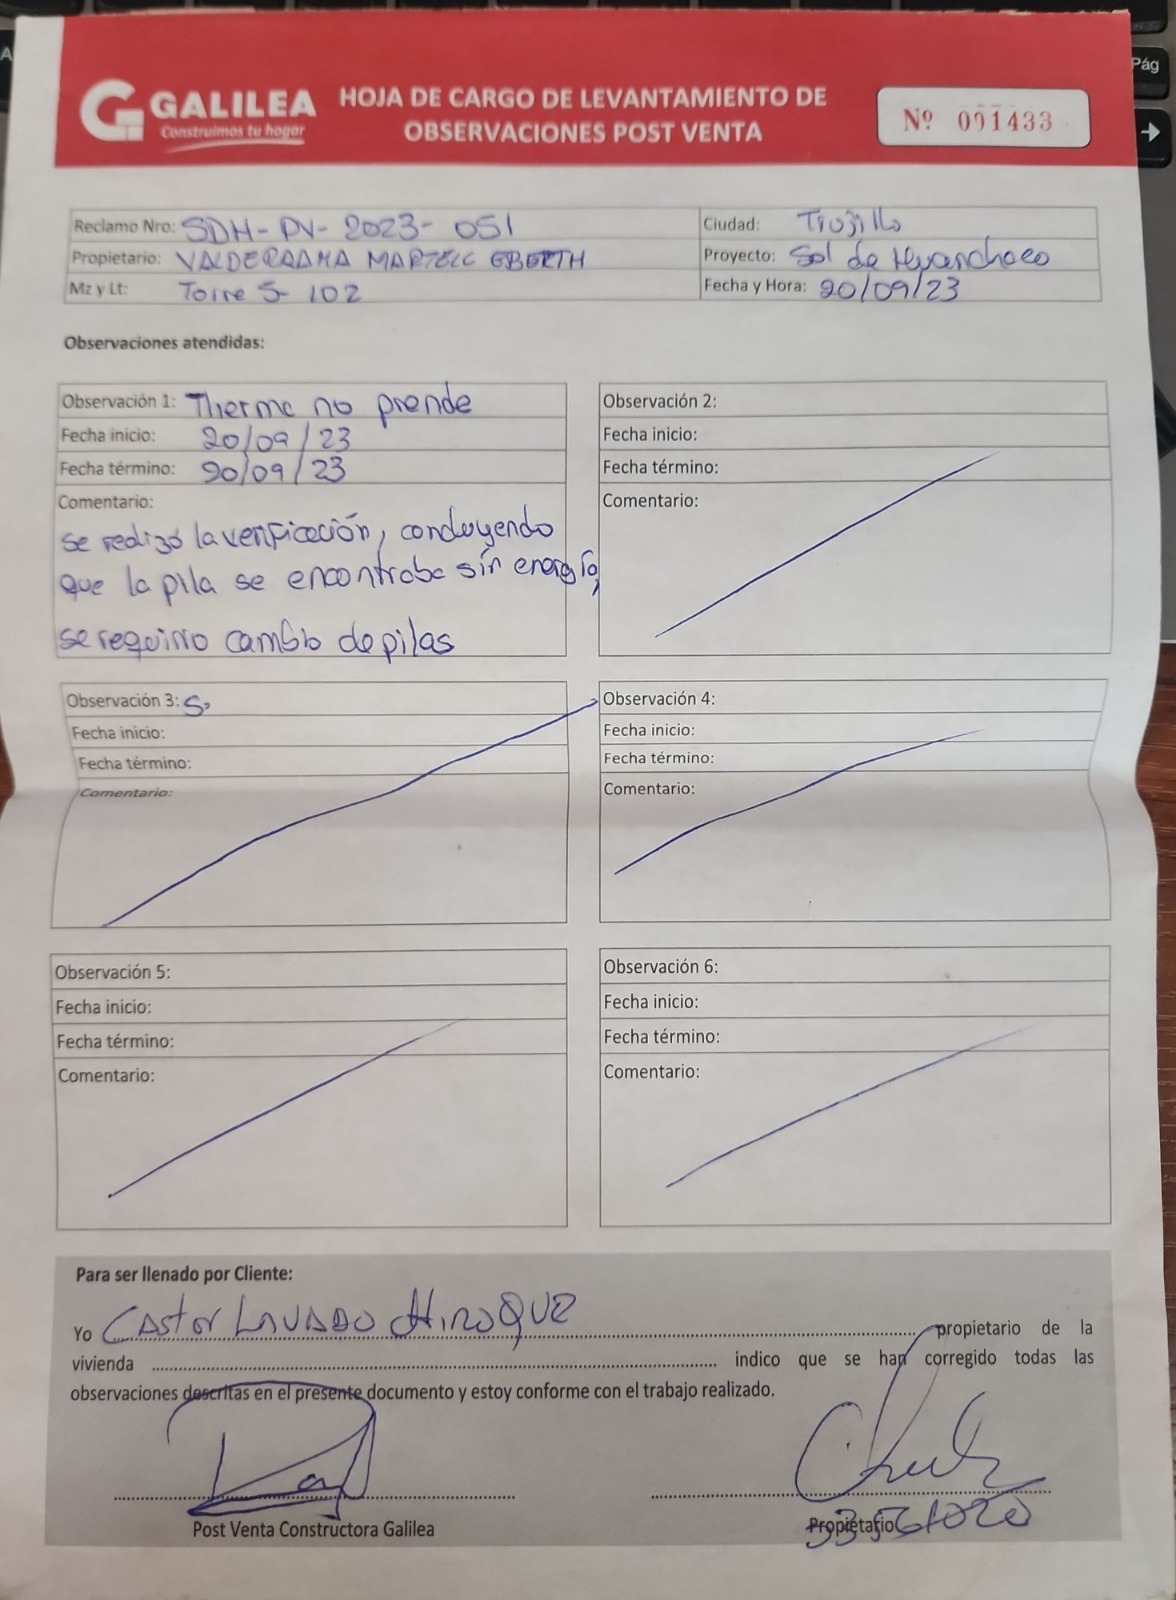 GALILEA
Construimos tu hogar
HOJA DE CARGO DE LEVANTAMIENTO DE
OBSERVACIONES POST VENTA
Nº 001433
Reclamo Nro: SDH-PV-2023-051
Ciudad: Trujillo
Propietario: VALDERRAMA MARTELL EBERTH
Proyecto: Sol de Huanchaco
Mz y Lt: Torre S-102
Fecha y Hora: 20/09/23
Observaciones atendidas:
Observación 1: Therma no prende
Fecha inicio: 20/09/23
Fecha término: 20/09/23
Comentario:
se realizó la verificación, concluyendo
que la pila se encontraba sin energía,
se requirio cambio de pilas
Observación 2:
Fecha inicio:
Fecha término:
Comentario:
Observación 3: S.
Fecha inicio:
Fecha término:
Comentario:
Observación 4:
Fecha inicio:
Fecha término:
Comentario:
Observación 5:
Fecha inicio:
Fecha término:
Comentario:
Observación 6:
Fecha inicio:
Fecha término:
Comentario:
Para ser llenado por Cliente:
Yo Castor LAVADO HIROQUE propietario de la
vivienda indico que se han corregido todas las
observaciones descritas en el presente documento y estoy conforme con el trabajo realizado.
Post Venta Constructora Galilea
Propietario
Pág